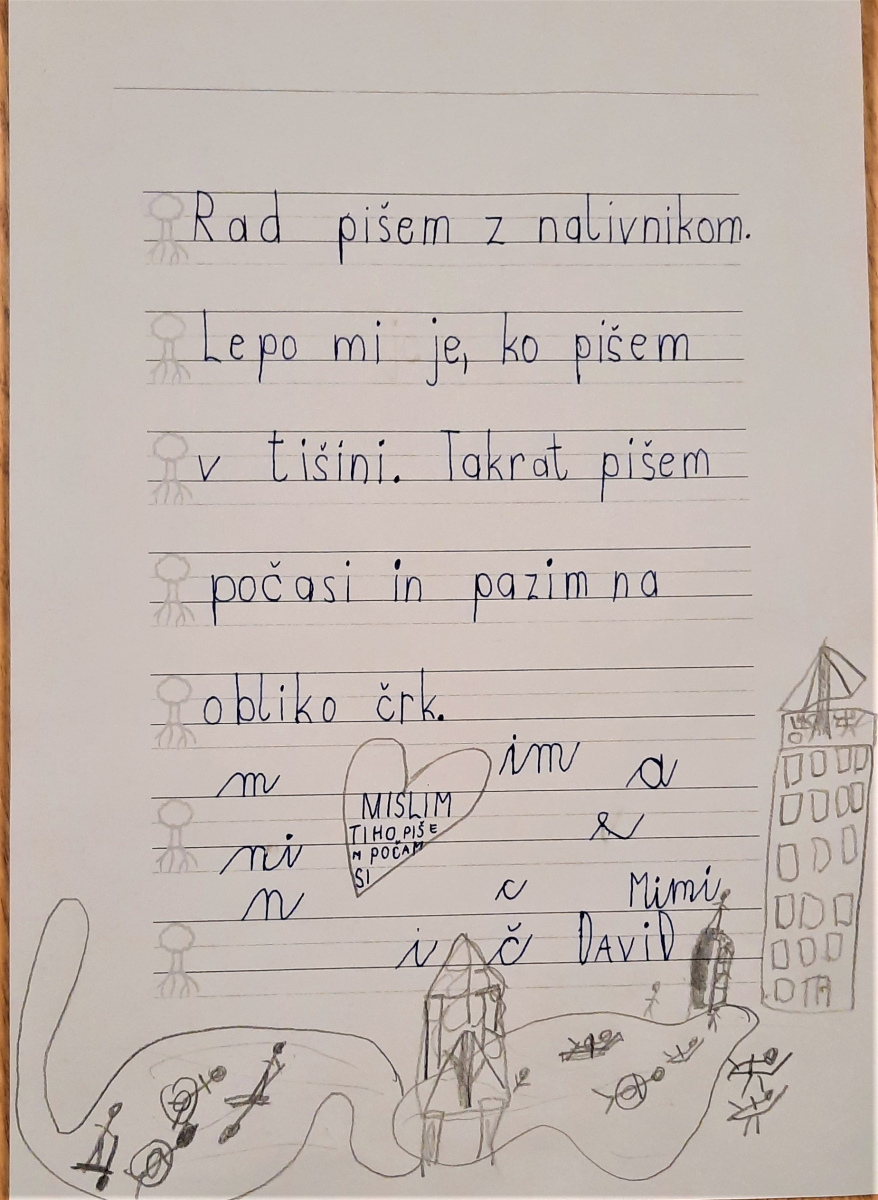 Rad pišem z nalivnikom.
Lepo mi je, ko pišem
v tišini. Takrat pišem
počasi in pazim na
obliko črk.
m im a
MISLIM
TIHO PIŠE
M POČAM
SI
ni
n c Mimi
i č DAViD